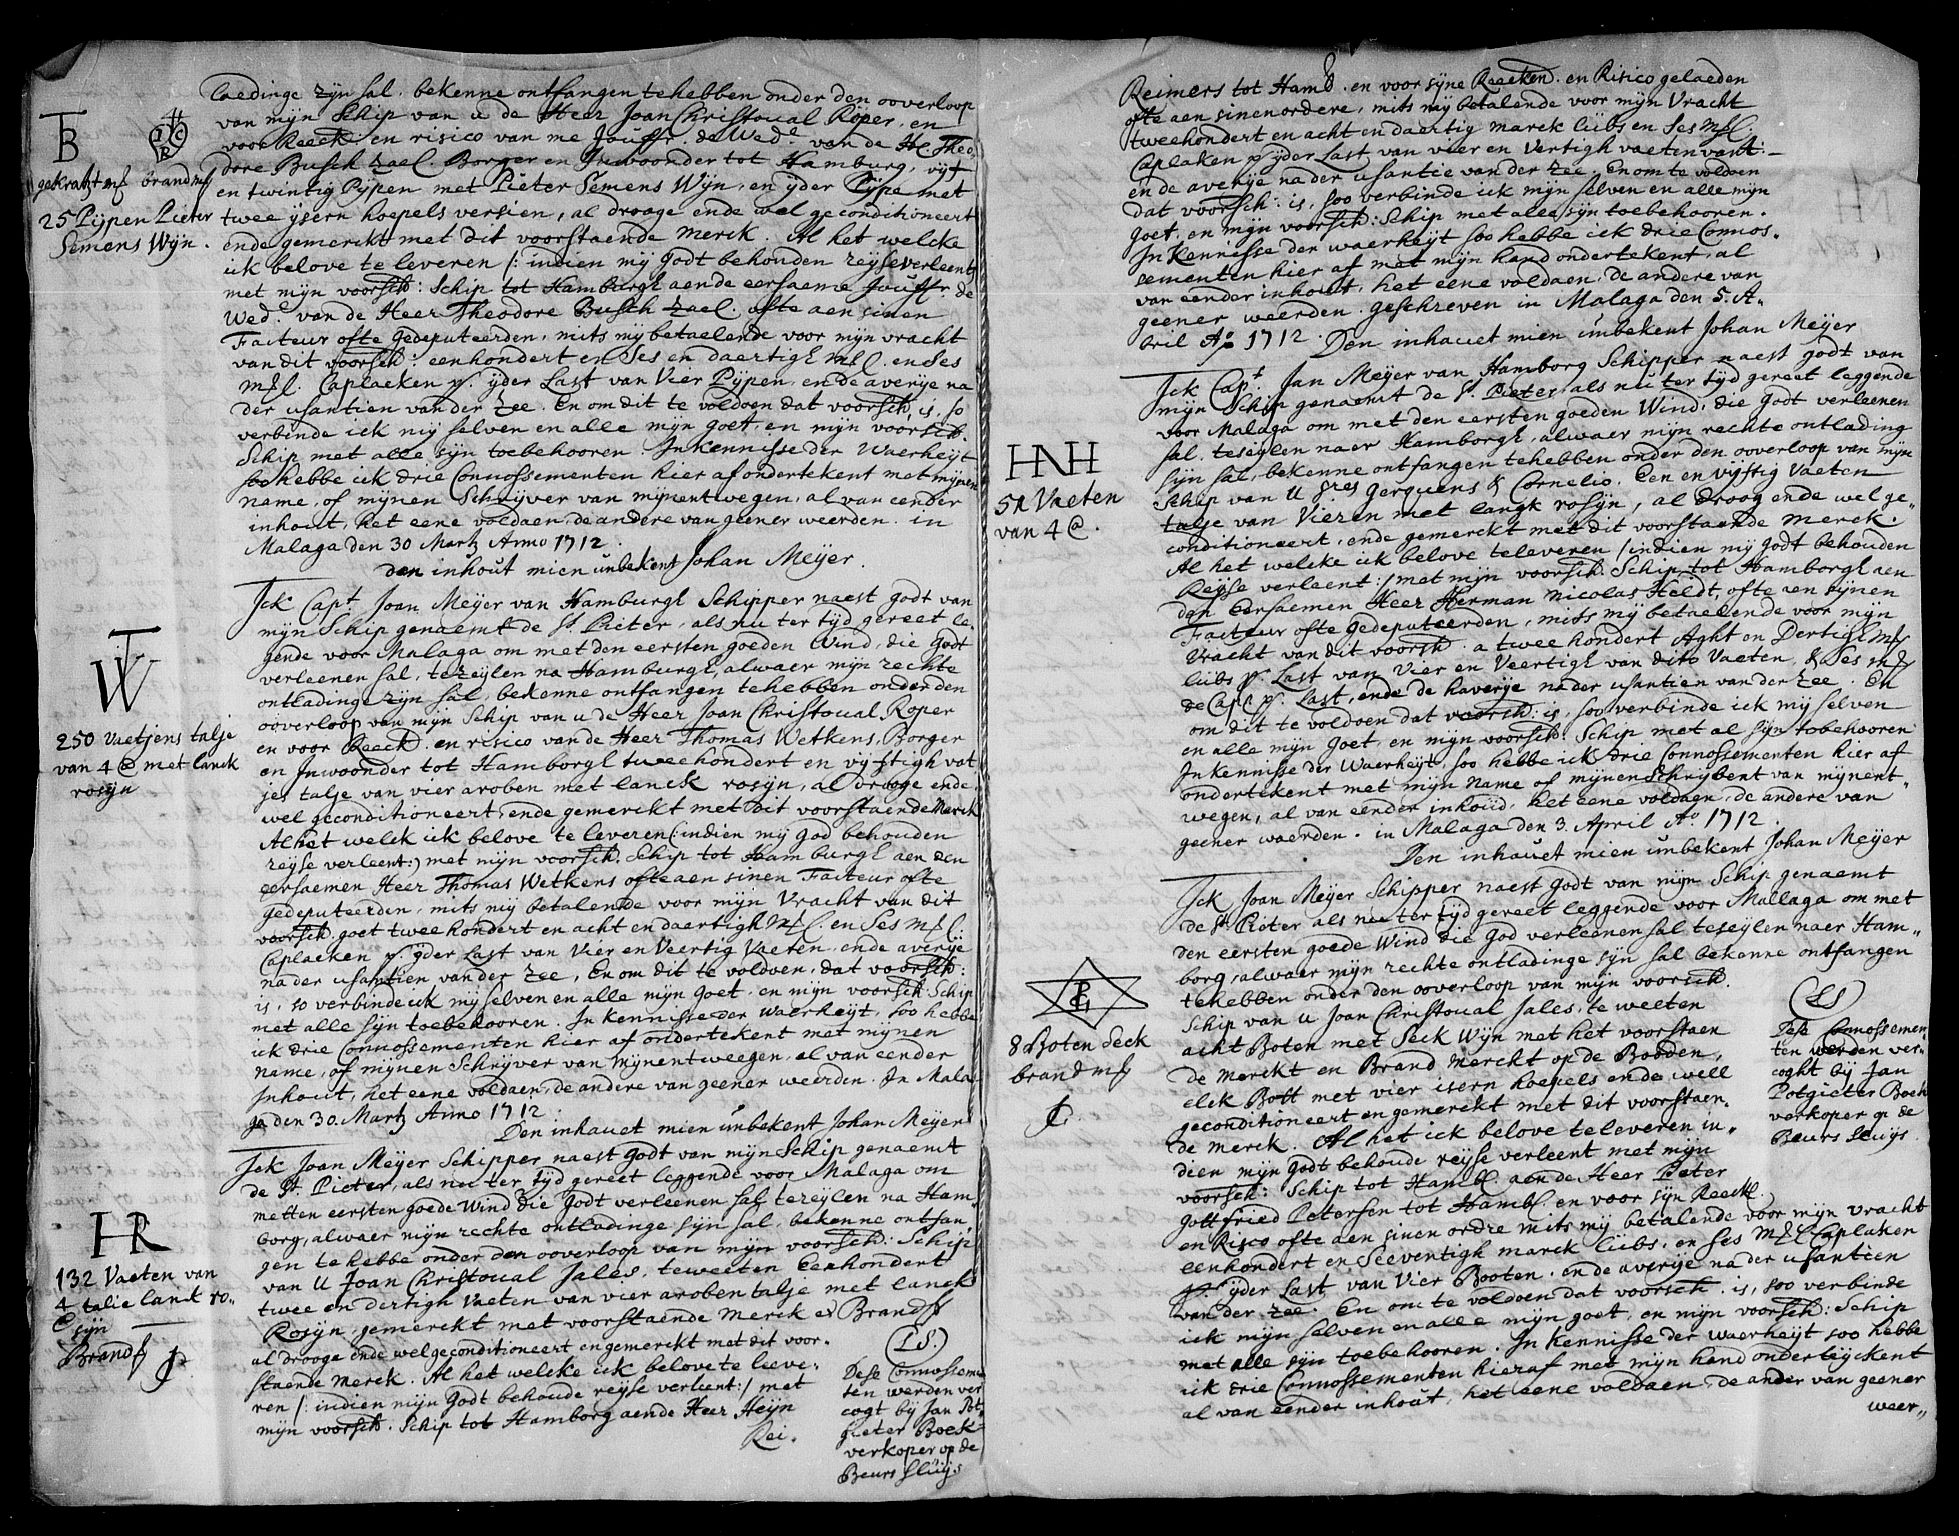 laedinge zyn sal. bekenne ontfangen te hebben onder den ooverloop
van mijn Schip van u de Heer Joan Christoual Roper, en
voor Reeck. en risico van me Jouffr. de Wed.e van de Hr. Theo-
dore Busch zael. Borger en Inwoonder tot Hamburg, vijf
en twintig Pypen met Pieter Semens Wyn, en yder Pype met
twee ysern hoepels versien, al drooge ende wel geconditioneert
ende gemerckt met dit voorstaende Merck. Al het welcke
ick belove te leveren /: indien my godt behouden reyse verleent
met mijn voorsch: Schip tot Hamburgh aende eersaeme Jouffr. de
Wed.e van de Heer Theodore Busch zael. ofte aen sinen
Facteur ofte gedeputeerden, mits my betaelende voor mijn vracht
van dit voorsch: eenhondert en Ses en daertigh mrl. en Ses
mrl. Caplaeken p. yder Last van Vier Pypen, en de averye na
der usantien van der Zee. En om dit te voldoen dat voorsch. is, so
verbinde ick my selven en alle mijn goet, en mijn voorsch.
Schip met alle syn toebehooren. In kennisse der Waerheyt
soo hebbe ick drie Connossementen hier af ondertekent met mijnen
name, of mijnen Schrijver van mijnent wegen, al van eender
inhout, het eene voldaen, de andere van geener weerden. in
Malaga den 30 Martz Anno 1712.
den inhout mien unbekent Johan Meyer.
TB
gekratzt en brandm
25 Pypen Pieter
Semens Wyn.
Ick Capt. Joan Meyer van Hamburgh Schipper naest godt van
mijn Schip genaemt de St. Pieter, als nu ter tyd gereet le-
gende voor Malaga om met den eersten goeden Wind, die godt
verleenen sal, te zeylen na Hamburgh, alwaer mijn rechte
ontladinge zyn sal, bekenne ontfangen te hebben onder den
ooverloop van mijn Schip van u de Heer Joan Christoual Roper
en voor Reeck. en risico van de Heer Thomas Wetkens, Borger
en Inwoonder tot Hamborgh twee hondert en vyftigh vat
jes talje van vier aroben met lanck rosyn, al drooge ende
wel geconditioneert, ende gemerckt met dit voorstaende Merck
Al het welck ick belove te leveren (: indien my god behouden
reyse verleent:) met mijn voorsch. Schip tot Hamburgh aen den
eersaemen Heer Thomas Wetkens ofte aen sinen Facteur ofte
gedeputeerden, mits my betalende voor mijn Vracht van dit
voorsch. goet twee hondert en acht en daertigh mrl. en Ses mrl:
Caplaeken p. yder Last van Vier en Veertig Vaeten, ende averye
na der usantien van der Zee, En om dit te voldoen, dat voorsch:
is, so verbinde ick my selven en alle mijn goet, en mijn voorsch: Schip
met alle syn toebehooren. In kennisse der Waerheyt, soo hebbe
ick drie Connossementen hier af ondertekent met mijnen
name, of mijnen Schrijver van mijnent weegen, al van eender
Inhout, het eene voldaen, de andere van geener weerden. In Mala-
ga den 30. Martz Anno 1712
Den inhauet mien unbekent Johan Meyer
TW
250 vaetjens talje
van 4 @ met lanck
rosyn
Ick Joan Meyer Schipper naest godt van mijn Schip genaemt
de St. Pieter, als nu ter tyd gereet leggende voor Malaga om
met ten eersten goede Wind die godt verleenen sal te zeylen na Ham-
borg, alwaer mijn rechte ontladinge syn sal, bekenne ontfan-
gen te hebbe onder den ooverloop van mijn voorsch: Schip
van U Joan Christoual Jales, te weeten Eenhondert
twee en dertigh Vaeten van vier aroben talje met lanck
Rosyn, gemerckt met voorstaende Merck ed Brand
al drooge ende wel geconditioneert en gemerckt met dit voor-
staende Merck. Al het welcke ick belove te leeve-
ren /: indien mijn godt behoude reyse verleent :/ met
mijn voorsch. Schip tot Hamborg aende Heer Heyn
Rei-
HR
132 Vaeten van
4 talie lanck ro-
@ syn
Brand
(LS.)
Dese Connosseme
ten werden ver
cogt bij Jan Pot-
gieter Boek-
verkoper op de
Beurs Sluys
Reimers tot Hamb. en voor syne Reecken. en Risico gelaeden
ofte aen sinen ordere, mits my betalende voor mijn Vracht
tweehondert en acht en daertig marck lubs en Ses mrl.
Caplaken p. yder Last van vier en Vertigh vaeten vant:
en de averye na der usantie van der Zee. En om te voldoen
dat voorsch: is, soo verbinde ick mijn selven en alle mijn
goet, en mijn voorsch: Schip met alle syn toebehooren.
In Kennisse den waerheyt soo hebbe ick drie Connos-
sementen hier af met mijn hand ondertekent, al
van eender inhout, het eene voldaen, de andere van
geener weerden. geschreven in Malaga den 5. A-
pril Ao. 1712. Den inhauet mien unbekent Johan Meyer
Ick Capt. Jan Meyer van Hamborg Schipper naest godt van
mijn Schip genaemt de St. Pieter, als nu ter tyd gereet leggende
voor Malaga om met den eersten goeden Wind, die godt verleenen
sal, te seylen naer Hamborgh, alwaer mijn rechte ontlading
syn sal, bekenne ontfangen te hebben onder den ooverloop van mijn
Schip van U Sres Jerquens & Cornelio. Een en vyftig Vaeten
talje van Vieren met langk rosyn, al droog ende wel ge-
conditioneert, ende gemerckt met dit voorstaende Merck.
Al het welcke ick belove te leveren /indien my godt behouden
Reyse verleent:/ met mijn voorsch. Schip tot Hamborgh aen
den Eersaemen Heer Herman Nicolas Heldt, ofte aen synen
Facteur ofte gedeputeerden, mits my betaelende voor mijn
Vracht van dit voorsch. a twee hondert Aght en Dertigh mrl
lubs p. Last van Vier en Veertigh van dito Vaeten, & Ses mrl
de Capl. p. Last, ende de haverye na der usantien van der Zee. En
om dit te voldoen dat voorsch: is, soo verbinde ick my selven
en alle mijn goet, en mijn voorsch: Schip met al syn tobehooren
In kennisse der Waerheyt, soo hebbe ick drie Connossementen hier af
ondertekent met mijn name of mijnen Schrijbent van mijnent-
wegen, al van eender inhoud, het eene voldaen, de andere van
geener waerden. in Malaga den 3. April Ao. 1712.
Den inhauet mien unbekent Johan Meyer
HNH
51 Vaeten
van 4 @.
Ick Joan Meyer Schipper naest godt van mijn Schip genaemt
de St. Pieter als nu ter tyd gereet leggende voor Mallaga om met
den eersten goede Wind die God verleenen sal te seylen naer Ham-
borg, alwaer mijn rechte ontladinge syn sal bekenne ontfangen
te hebben onder den ooverloop van mijn voorsch.
Schip van U Joan Christoual Jales, te weeten
acht Boten met Seck Wyn met het voorstaen
de Merckt en Brand Merckt op de Booden,
elck Bott met vier isern hoepels ende well
geconditioneert en gemerckt met dit voorstaen-
de Merck. Al het ick belove te leveren in-
deen mijn godt behoude reyse verleent met mijn
voorsch: Schip tot Hamb. aen de Heer Peter
Gottfried Petersen tot Hamb. en voor syn Reeck.
en Risco ofte aen sinen ordre mits my betalende voor mijn vracht
eenhondert en Seeventigh marck lubs, en ses mrl Caplaken
p. yder Last van Vier Booten, en de averye na der usantien
van der Zee. En om te voldoen dat voorsch. is, soo verbinde
ick mijn selven en alle mijn goet, en mijn voorsch: Schip
met alle syn toebehooren. In kennisse der waerheyt soo hebbe
ick drie Connossementen hieraf met mijn hand onderteyckent
al van eender inhout, het eene voldaen, de ander van geener
weer-
8 Boten Seck
brandm
(LS)
Dese Connossemen-
ten werden ver-
coght bij Jan
Potgieter Boek
verkoper op de
Beurs Sluys.